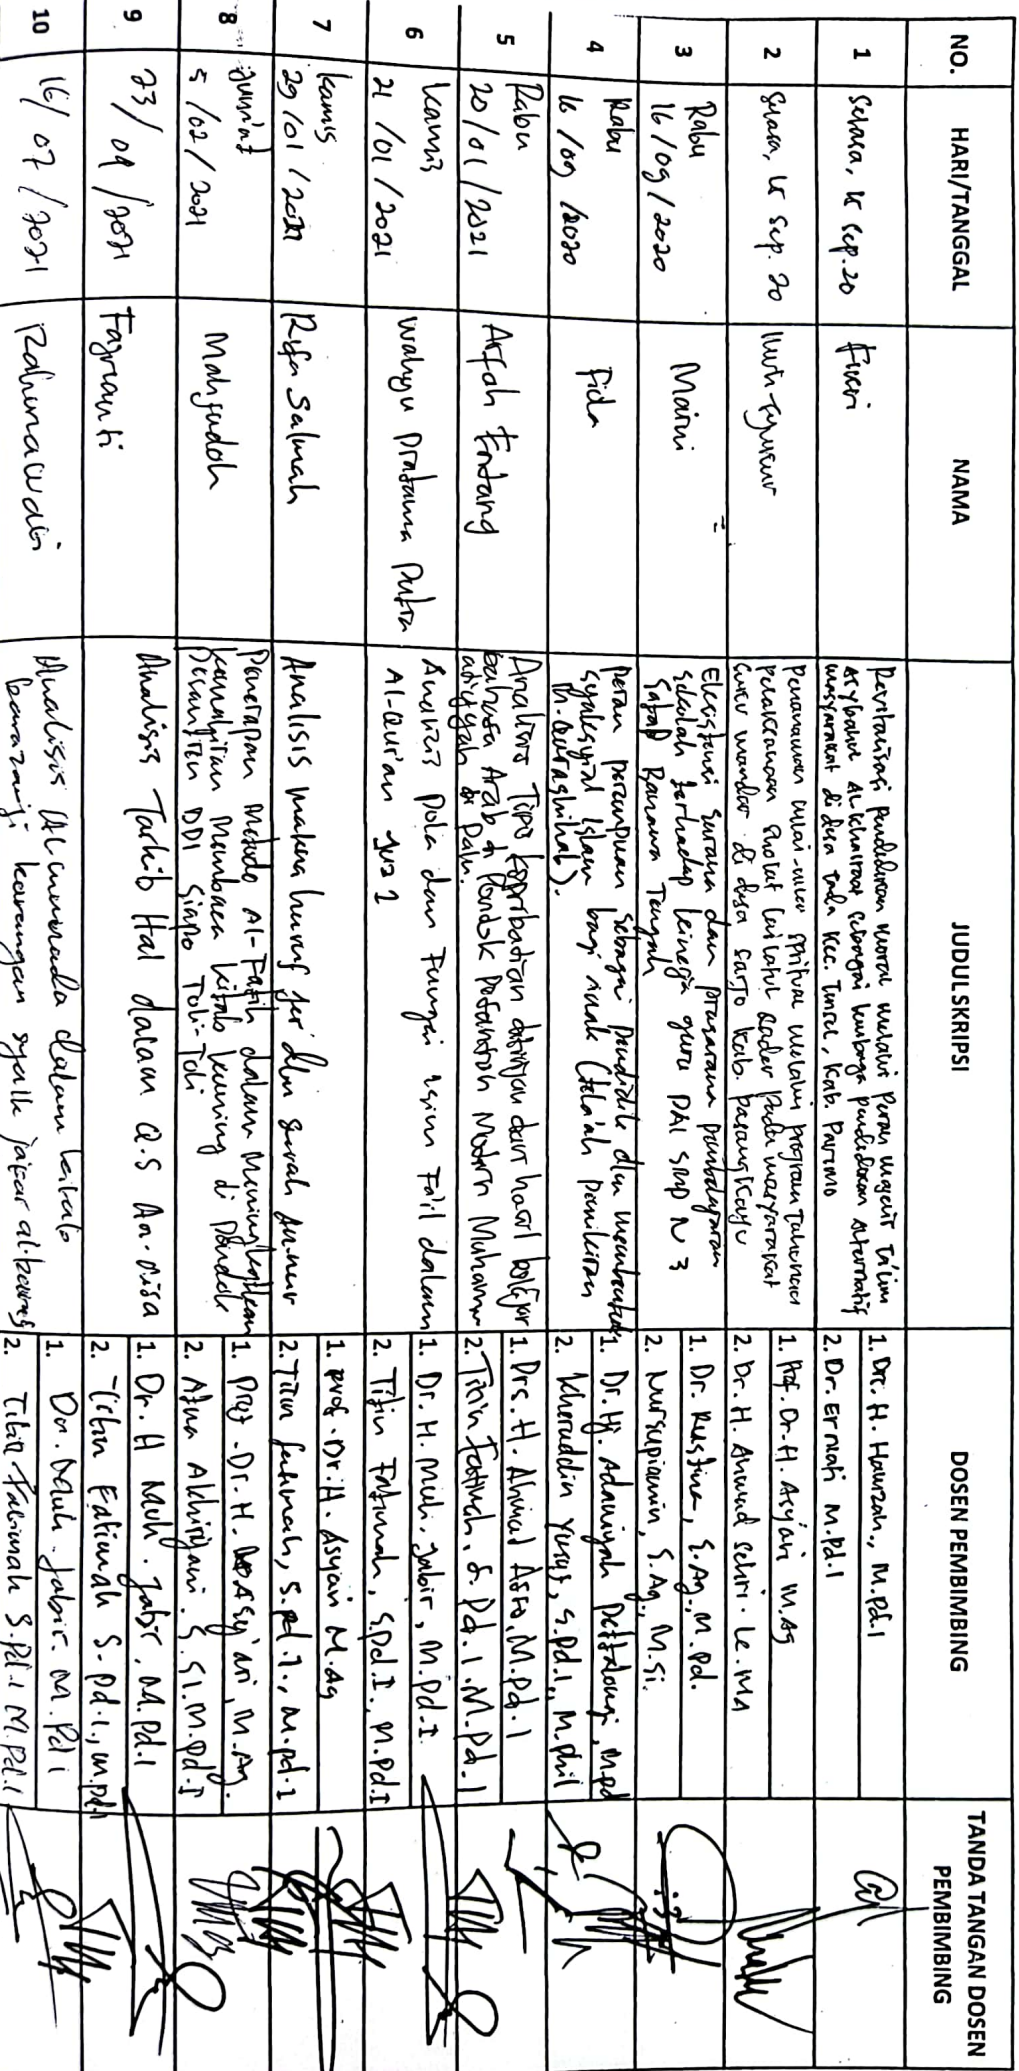 NO.
HARI/TANGGAL
NAMA
JUDULSKRIPSI
DOSEN PEMBIMBING
TANDA TANGAN DOSEN
PEMBIMBING
1
Selasa, 15 Sep. 20
Revitalisasi Pendidikan moral melalui Peran majelis Ta'lim
Alkhairaat sebagai lembaga pendidikan alternatif
masyarakat di desa Kec. Kab. Parimo
1. Dr. H. Hamzah., M.Pd.I
2. Dr. Erniati M.Pd.I
2
Selasa, 15 Sep. 20
Penanaman nilai-nilai spritual melalui program
pelaksanaan sholat lailatul qadar Pada masyarakat
suku mandar di desa sarjo kab. pasangkayu
1. Prof. Dr. H. Asy'ari M.Ag
2. Dr. H. Le. MA
3
Rabu
16/09/2020
Mairni
Eksistensi Sarana dan prasarana pembelajaran
Sekolah terhadap kinerja guru PAI SMP N 3
Tengah
1. Dr. Rustina, S.Ag., M.Pd.
2. Nursupiamin, S.Ag., M.Si.
4
Rabu
16/09/2020
Fida
Peran perempuan sebagai pendidik dlm membentuk
Islam bagi anak (telaah pemikiran
M. Quraish Shihab).
1. Dr. Hj. Adawiyah Pettalongi, M.Pd
2. Khaeruddin Yusuf, S.Pd.I, M.Phil
5
Rabu
20/01/2021
Arfah Entang
Analisis Tipe kepribadian dan hasil belajar
bahasa Arab di Pondok Pesantren Modern Muham
adiyyah di Palu.
1. Drs. H. Ahmad Asse, M.Pd.I
2. Titin Fatimah, S.Pd.I. M.Pd.I
6
Kamis
21/01/2021
Wahyu Pratama Putra
Analisis Pola dan Fungsi isim Fa'il dalam
Al-Qur'an juz 1
1. Dr. H. Muh. Jabir, M.Pd.I.
2. Titin Fatimah, S.Pd.I., M.Pd.I
7
Kamis
29/01/2021
Rifa Salmah
Analisis makna huruf jer dlm surah An-nur
1. Prof. Dr. H. Asy'ari M.Ag
2. Titin fatimah, S.Pd.I., M.Pd.I
8
Jum'at
5/02/2021
Mahfudoh
Penerapan Metode Al-Fatih dalam Meningkatkan
Kemahiran Membaca kitab kuning di Pondok
Pesantren DDI Toli-Toli
1. Prof. Dr. H. Asy'ari, M.Ag.
2. Atna Akhiryani. S.SI. M.Pd.I
9
23/09/2021
Fajrianti
Analisis Tarkib Hal dalam Q.S An-nisa
1. Dr. H Muh. Jabir, M.Pd.I
2. Titin Fatimah S.Pd.I., M.Pd.I
10
16/07/2021
Rahmawati
Analisis dalam kitab
barazanji karangan syekh jafar
1. Dr. Muh. Jabir. M.Pd I
2. Titin Fatimah S.Pd.I M.Pd.I